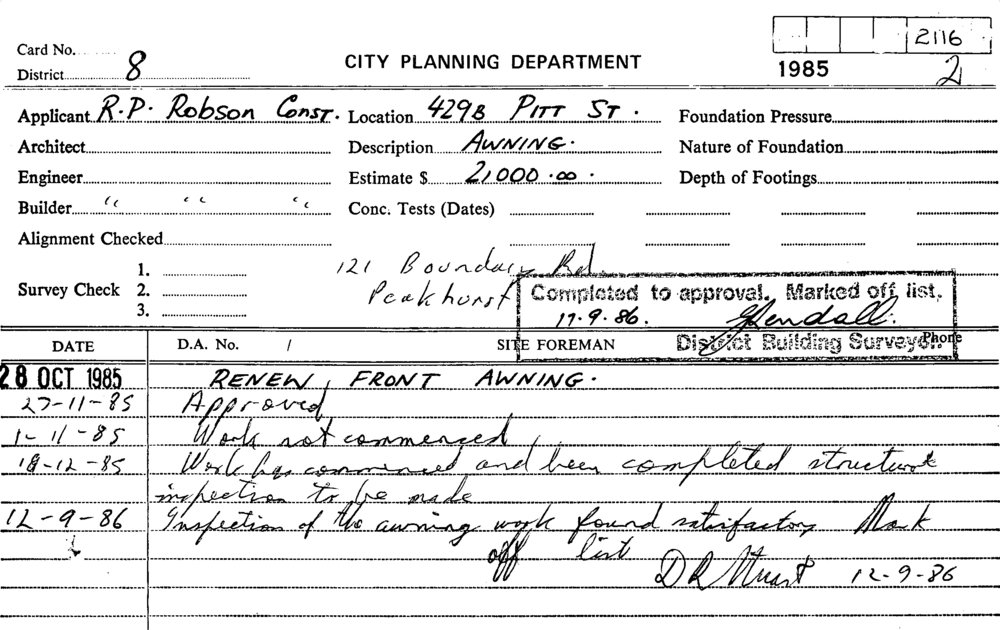 Card No. 2116
District 8 CITY PLANNING DEPARTMENT 1985 2
Applicant R.P. Robson Const. Location 429B Pitt St. Foundation Pressure
Architect Description Awning. Nature of Foundation
Engineer Estimate $ 21000.00. Depth of Footings
Builder " " " Conc. Tests (Dates)
Alignment Checked
1. 121 Boundary Rd.
Survey Check 2. Peakhurst Completed to approval. Marked off list.
3. 17.9.86.
DATE D.A. No. / SITE FOREMAN District Building Surveyor. Phone
28 OCT 1985 RENEW FRONT AWNING.
27-11-85 Approved
1-11-85 Work not commenced
18-12-85 Work has commenced and been completed
inspection to be made
12-9-86 Inspection of the awning work found satisfactory Mark
off list D R Stuart 12-9-86